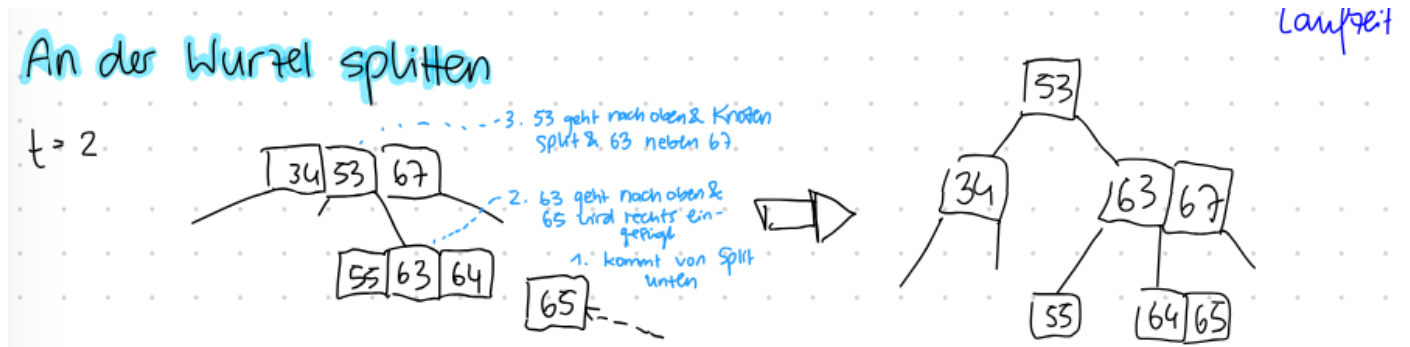 Laufzeit
An der Wurzel splitten
t = 2
3. 53 geht nach oben & Knoten
split & 63 neben 67
34 53 67
2. 63 geht nach oben &
65 wird rechts ein-
gefügt
1. kommt von Split
unten
55 63 64
65
53
34
63 67
55
64 65